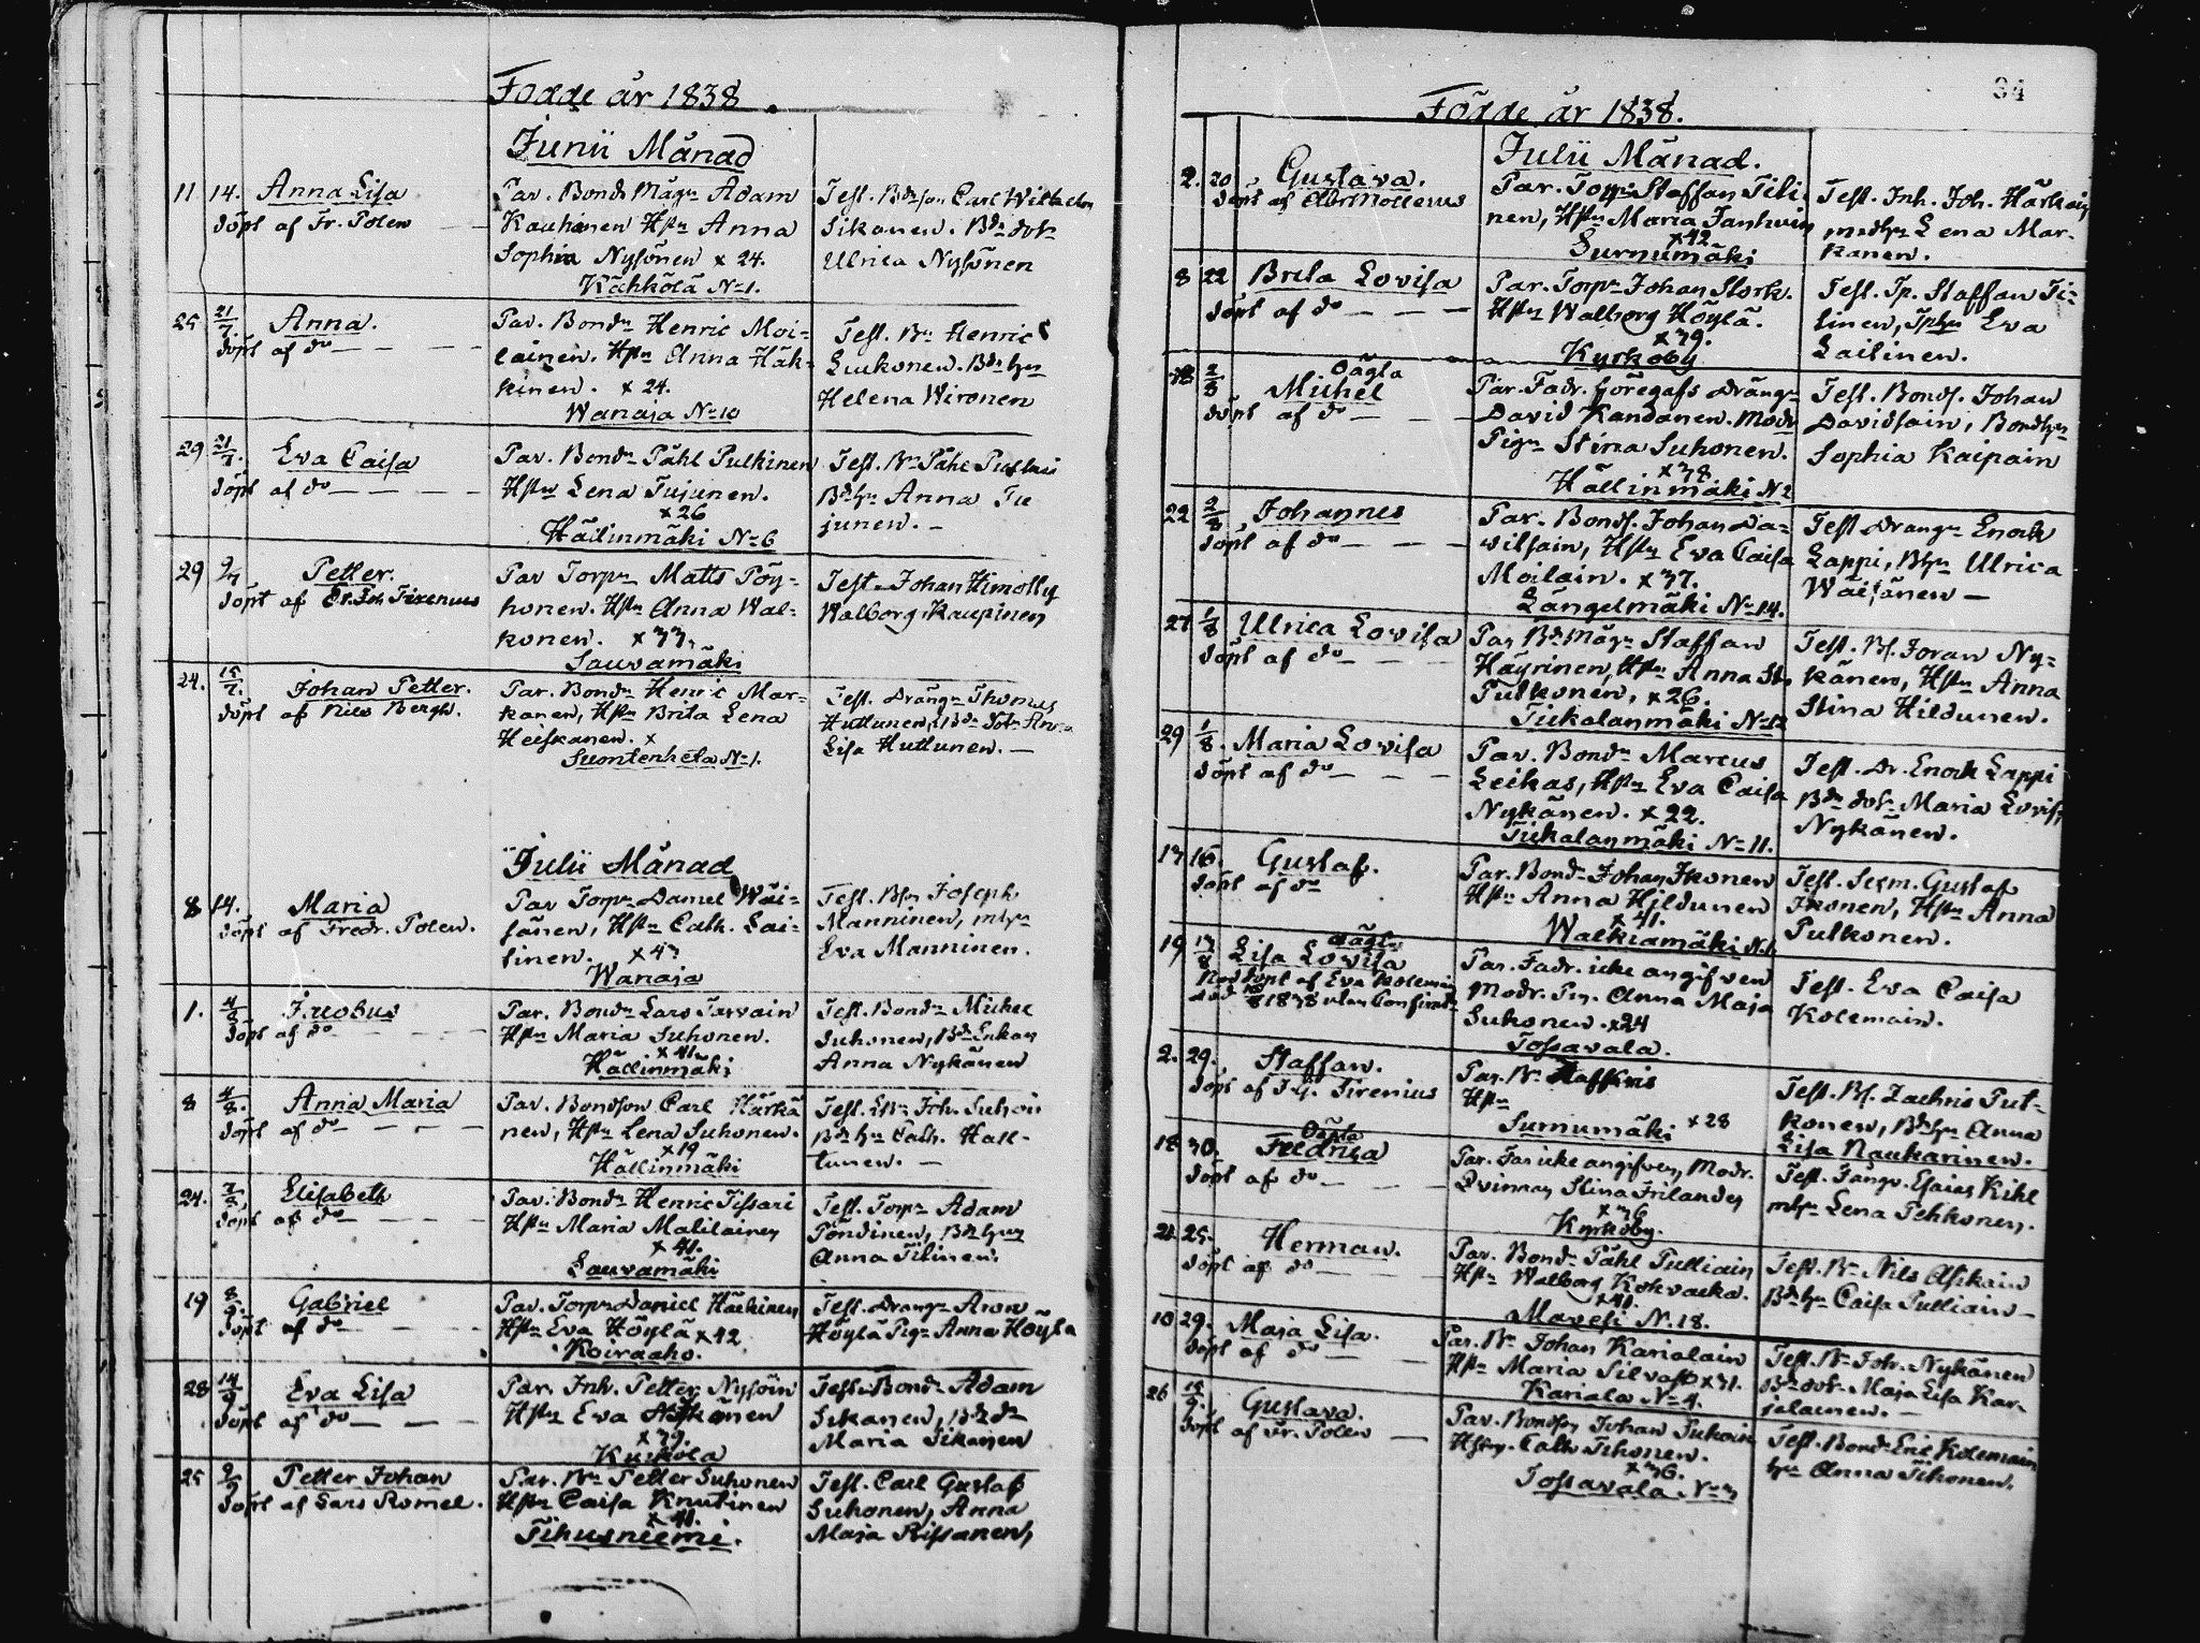 Födde år 1838
Junii Månad
11 14. Anna Lisa
döpt af Fr. Polen
Par. Bonde Mågn Adam
Kauhanen Hstn Anna
Sophia Nysönen x 24.
Kähkölä No 1.
Test. Bdeson Carl Wilhelm
Sikanen. Bdn dotr
Ulrica Nysönen
25 21/7. Anna.
döpt af do
Par. Bondn Henric Moi-
lainen. Hstn Anna Häk-
kinen. x 24.
Wanaja No 10
Test. Bn Henric
Luukonen. Bdn hn
Helena Wironen
29 21/7. Eva Caisa
döpt af do
Par. Bondn Påhl Pulkinen
Hstn Lena Tujunen.
x 26
Hällinmäki No 6
Test. Bn Påhl
Bdhn Anna Tu
junen.
29 9/7 Petter.
döpt af Joh. Tirenius
Par Torpn Matts Pöy-
honen. Hstn Anna Wal-
konen. x 33.
Sauvamäki
Test. Johan Himolly
Walborg Kaupinen
24. 15/7. Johan Petter.
döpt af Nils Bergh.
Par. Bondn Henric Mar-
kanen, Hstn Brita Lena
Heiskanen. x
Suontenheta No 1.
Test. Drängn Thomas
Huttunen, Bdn dotr Anna
Lisa Huttunen.
Julii Månad
8 14. Maria
döpt af Fredr. Polen.
Par Torpn Daniel Wäi-
sänen, Hstn Cath. Lai-
tinen. x 43
Wanaja
Test. Bsn Joseph
Manninen, mhn
Eva Manninen.
1. 4/8 Jacobus
döpt af do
Par. Bondn Lars Tarvain
Hstn Maria Suhonen.
x 41.
Hällinmäki
Test. Bondn Michel
Suhonen, Bdn Enkan
Anna Nykänen
8 4/8. Anna Maria
döpt af do
Par. Bondson Carl Härkä
nen, Hstn Lena Suhonen.
x 19
Hällinmäki
Test. Bn Joh. Suhoin
Bdn hn Cath. Hall-
tunen.
24. Elisabeth
döpt af do
Par. Bondn Henric Tissari
Hstn Maria Malilainen
x 41.
Sauvamäki
Test. Torpn Adam
Pöndinen, Bdn hn
Anna Tilinen.
19 8/9. Gabriel
döpt af do
Par. Torpn Daniel Häckinen
Hstn Eva Höylä x 42
Koiraaho.
Test. Drängn Aron
Höylä Pign Anna Höylä
28 14/9 Eva Lisa
döpt af do
Par. Inh. Petter Nysöin
Hstn Eva
x 39.
Kurkola
Test. Bondn Adam
Sikanen, Bdn dr
Maria Sikanen
25 9/9 Petter Johan
döpt af Lars Romel.
Par. Bn Petter Suhonen
Hstn Caisa Knutinen
x 41.
Tihusniemi.
Test. Carl Gustaf
Suhonen, Anna
Maja Rissanen,
34
Födde år 1838.
Julii Månad.
2. 20 Gustava.
döpt af Mollerus
Par. Torpn Staffan Tili
nen, Hstn Maria Janhuin
x 42
Surnumäki
Test. Inh. Joh. Härkäin
medhn Lena Mar-
kanen.
8 22 Brita Lovisa
döpt af do
Par. Torpn Johan Stork.
Hstn Walborg Höylä.
x 39.
Kyrkoby
Test. Tp. Staffan Ti-
linen, Tphn Eva
Laitinen.
2/8 Oägta
Michel
döpt af do
Par. Fadr. föregafs drängn
David Kandanen. Modr
Pign Stina Suhonen.
x 38
Hällinmäki No 2
Test. Bonds. Johan
Davidsain, Bondhn
Sophia Kaipain
22 2/8 Johannes
döpt af do
Par. Bonds. Johan Da-
vitsain, Hstn Eva Caisa
Moilain. x 37.
Längelmäki No 14.
Test Drängn Enoch
Lappi, Bhn Ulrica
Wäisänen
27 1/8 Ulrica Lovisa
döpt af do
Par Bdn Mågn Staffan
Häyrinen, Hstn Anna St.
Putkonen, x 26.
Tiekalanmäki No 12
Test. Bs. Joran Ny-
känen, Hstn Anna
Stina Hildunen.
29 1/8. Maria Lovisa
döpt af do
Par. Bondn Marcus
Leikas, Hstn Eva Caisa
Nykänen. x 22.
Tiekalanmäki No 11.
Test. Dr. Enoch Lappi
Bdn dotr Maria Lovis,
Nykänen.
13 16. Gustaf.
döpt af do
Par. Bondn Johan Ikonen
Hstn Anna Hildunen
x 41.
Walkiamäki N.1.
Test. Sexm. Gustaf
Ikonen, Hstn Anna
Putkonen.
19 13/8 Oägta
Lisa Lovisa
Nöddöpt af Eva Kolemain
död 1838 utan Confirmn
Par. Fadr. icke angifven
Modr. Pn. Anna Maja
Suhonen. x24
Tossavala.
Test. Eva Caisa
Kolemain.
2. 29. Staffan.
döpt af Tirenius
Par. Bn
Hstn
Surnumäki x 28
Test. Bs. Zachris Put-
konen, Bdhn Anna
Lisa Naukarinen.
18 30. Oägta
Fredrica
döpt af do
Par. Far icke angifven, Modr.
Qvinnan Stina Frilander
x 36
Kyrkoby.
Test. Fångv. Esaias Kihl
mhn Lena Pekkonen.
21. 25. Herman.
döpt af do
Par. Bondn Påhl Pulliain
Hstn Walborg Kohvacka.
x 41.
Mavesi N. 18.
Test. Bn Nils Asikain
Bdn hn Caisa Pulliain
10 29. Maja Lisa.
döpt af do
Par. Bn Johan Karialain
Hstn Maria Silvast x 31.
Kariala No 4.
Test. Bn Joh. Nykänen
Bn dotr Maja Lisa Kar-
jalainen.
26 Gustava.
döpt af Fr. Polen
Par. Bondson Johan Suhoin
Hstn Cath Tihonen.
x 36.
Tossavala No 3
Test. Bondn Eric Kolemain
hn Anna Tihonen.